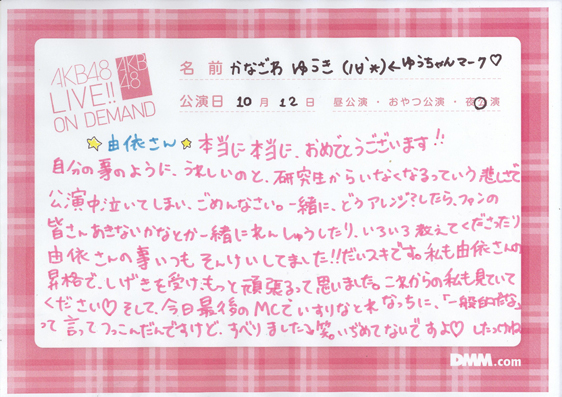 AKB48
LIVE!!
ON DEMAND
AKB
48
名前 かなざわ ゆうき (ノง`*)←ゆうちゃんマーク♡
公演日 10月 12日 昼公演・おやつ公演・夜公演
☆由依さん☆ 本当に本当に、おめでとうございます!!
自分の事のように、うれしいのと、研究生からいなくなるっていう悲しさで
公演中泣いてしまい、ごめんなさい。一緒に、どうアレンジ?したら、ファンの
皆さんあきないかなとか一緒にれんしゅうしたり、いろいろ教えてくださったり
由依さんの事いつもそんけいしてました!!だいスキです。私も由依さんの
昇格で、しげきを受け、もっと頑張るって思いました。これからの私も見ていて
ください♡そして、今日最後のMCでいずりなとれなっちに、「一般的だな」
って言ってつっこんだんですけど、すべりました↘笑。いぢめてないですよ♡
DMM.com